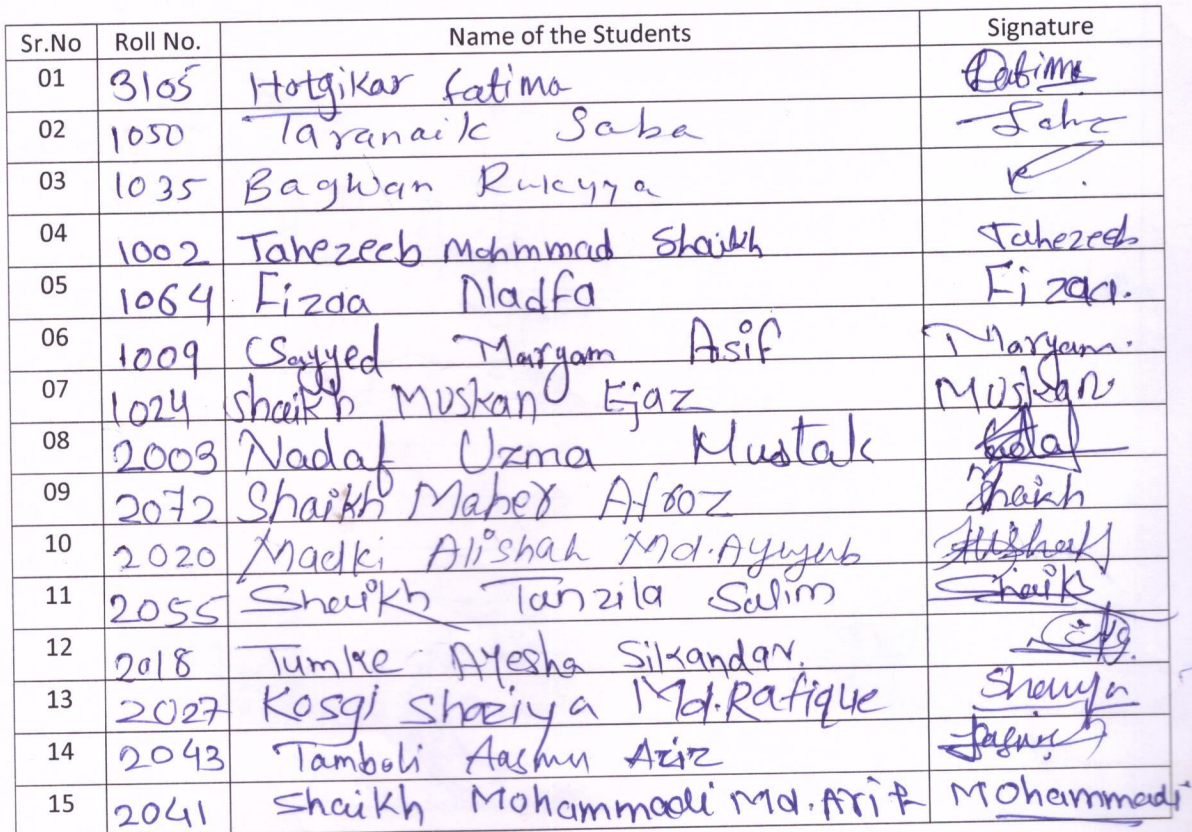 Sr.No Roll No. Name of the Students Signature
01 3105 Hotgikar fatima Fatima
02 1050 Taranaik Saba Saba
03 1035 Bagwan Rukayya
04 1002 Tahezeeb Mohmmad Shaikh Tahezeeb
05 1064 Fizaa Nadfa Fizaa.
06 1009 Sayyed Maryam Asif Maryam.
07 1024 Shaikh Muskan Ejaz Muskan
08 2003 Nadaf Uzma Mustak
09 2072 Shaikh Maher Afroz Shaikh
10 2020 Madki Alishah Md.Ayyub
11 2055 Shaikh Tanzila Salim Shaik
12 2018 Tumke Ayesha Sikandar.
13 2027 Kosgi Shaziya Md.Rafique
14 2043 Tamboli Aziz
15 2041 Shaikh Mohammadi Md.Arif Mohammadi